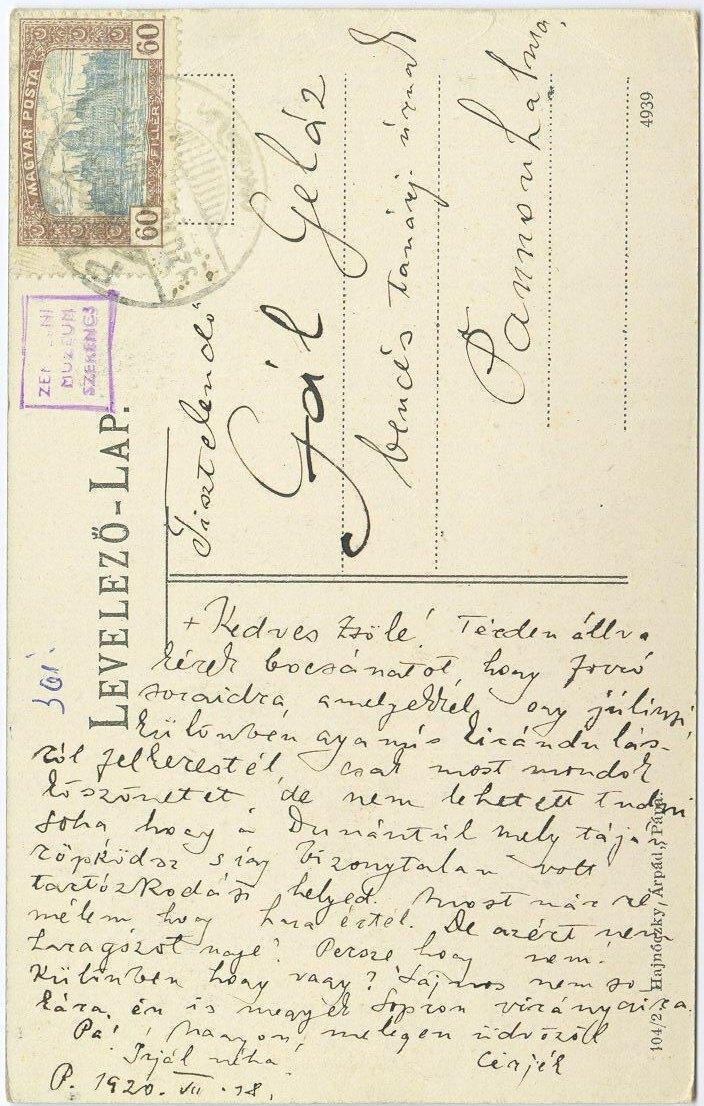 MAGYAR POSTA
60 FILLÉR 60
ZEMPLÉNI
MUZEUM
SZERENCS
LEVELEZŐ-LAP.
Tisztelendő
Gál Geláz
bencés tanárj. úrnak
Pannonhalma.
4939
104/2. Hajnóczky Árpád, Pápa.
+ Kedves Zsőle! Térden állva
kérek bocsánatot, hogy forró
soraidra, amelyekkel egy júliusi
különben gyanús kirándulás-
ról felkerestél, csak most mondok
köszönetet, de nem lehetett tudni
soha hogy a Dunántúl mely táján
röpködsz s így bizonytalan volt
tartózkodási helyed. Most már re-
mélem hogy haza értél. De azért nem
haragszol ugye? Persze hogy nem!
Különben hogy vagy? Sajnos nem so-
kára én is megyek Sopron virányaira.
Pá! Nagyon melegen üdvözöl
Írjál néha!
P. 1920. VII. 18.